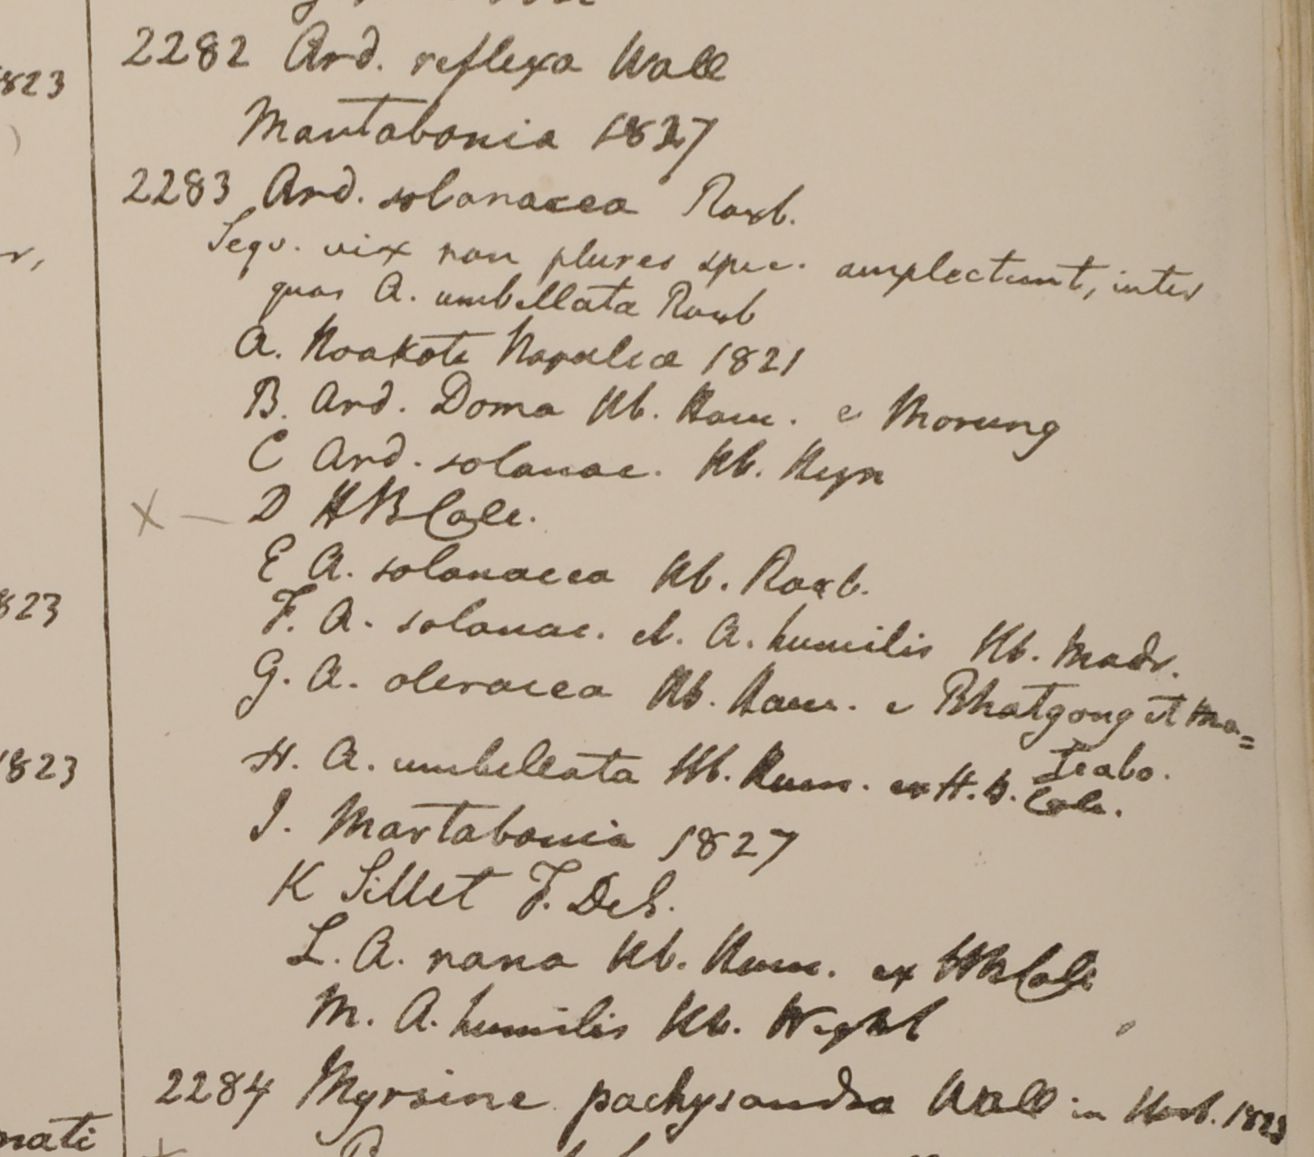 2282 Ard. reflexa Wall
Martabania 1827
2283 Ard. solanacea Roxb.
Sequ. vix non plures spec. amplectunt, inter
quas A. umbellata Roxb
A. Noakote Napalia 1821
B. Ard. Doma Hb. Ham. e Morung
C Ard. solanac. Hb. Heyn
X — D HBCalc.
E A. solanacea Hb. Roxb.
F. A. solanac. et. A. humilis Hb. Madr.
G. A. oleracea Hb. Ham. e Bhatgong et Ma=
H. A. umbellata Hb. Ham. ex H. B. Calc.
I. Martabania 1827
K Sillet F. DeS.
L. A. nana Hb. Ham. ex HBCalc
M. A. humilis Hb. Wight
2284 Myrsine pachysandra Wall in Herb. 1823
823
r,
823
1823
nati